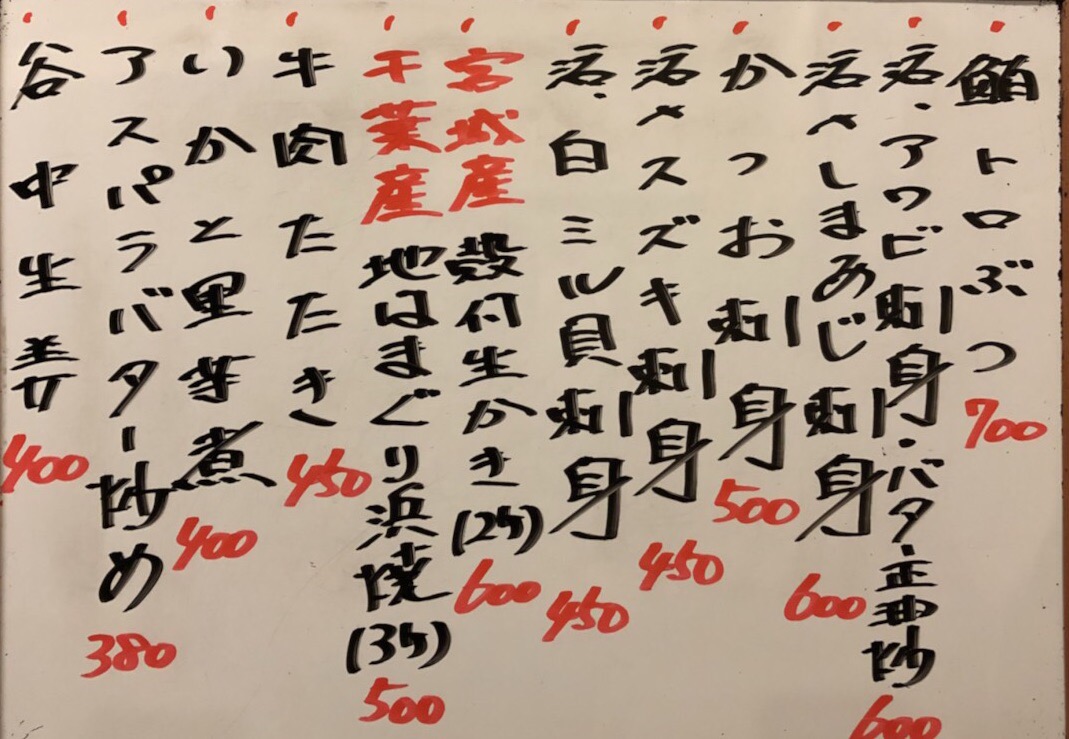 鮪トロぶつ 700
活、アワビ刺身・バター正油炒 600
活〆しまあじ刺身 600
かつお刺身 500
活〆スズキ刺身 450
活、白ミル貝刺身 450
宮城産 殻付生かき(2ケ) 600
千葉産 地はまぐり浜焼(3ケ) 500
牛肉たたき 450
いかと里芋煮 400
アスパラバター炒め 380
谷中生姜 400